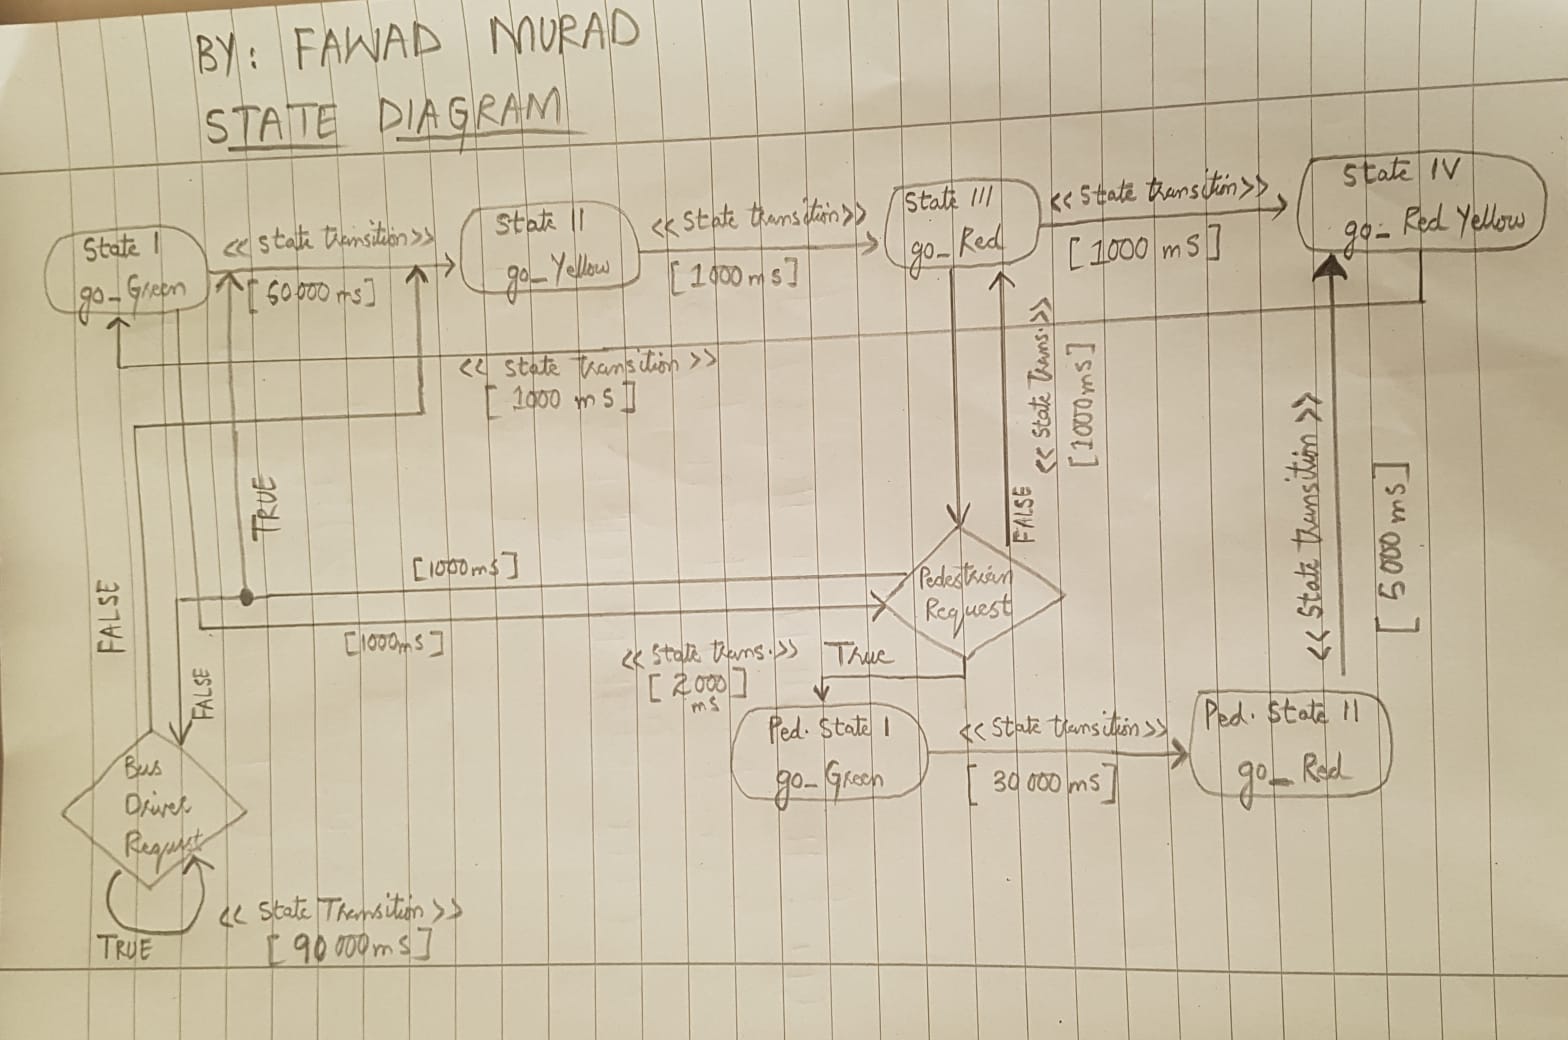 BY: FAWAD MURAD
STATE DIAGRAM
State I
go_Green
<< State transition >>
[60000 ms]
State II
go_Yellow
<< State transition >>
[1000 ms]
State III
go_Red
<< State transition >>
[1000 mS]
State IV
go_Red Yellow
<< State transition >>
[1000 mS]
<< State Trans. >>
[1000ms]
FALSE
<< State transition >>
[5000 ms]
TRUE
FALSE
FALSE
[1000mS]
[1000mS]
Pedestrian
Request
<< State trans. >>
[2000
ms]
True
Ped. State I
go_Green
<< State transition >>
[30000 ms]
Ped. State II
go_Red
Bus
Driver
Request
TRUE
<< State Transition >>
[90000 mS]